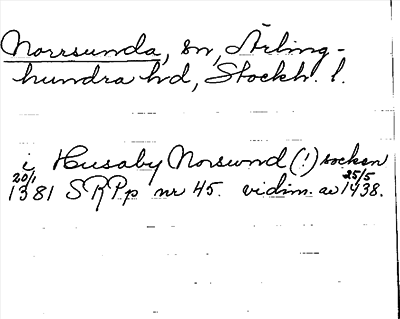 Norrsunda, sn, Ärling-
hundra hd, Stockh. l.
i Husaby Norswnd (!) socken
20/1 1381 SRPp nr 45. vidim. av 25/5 1438.